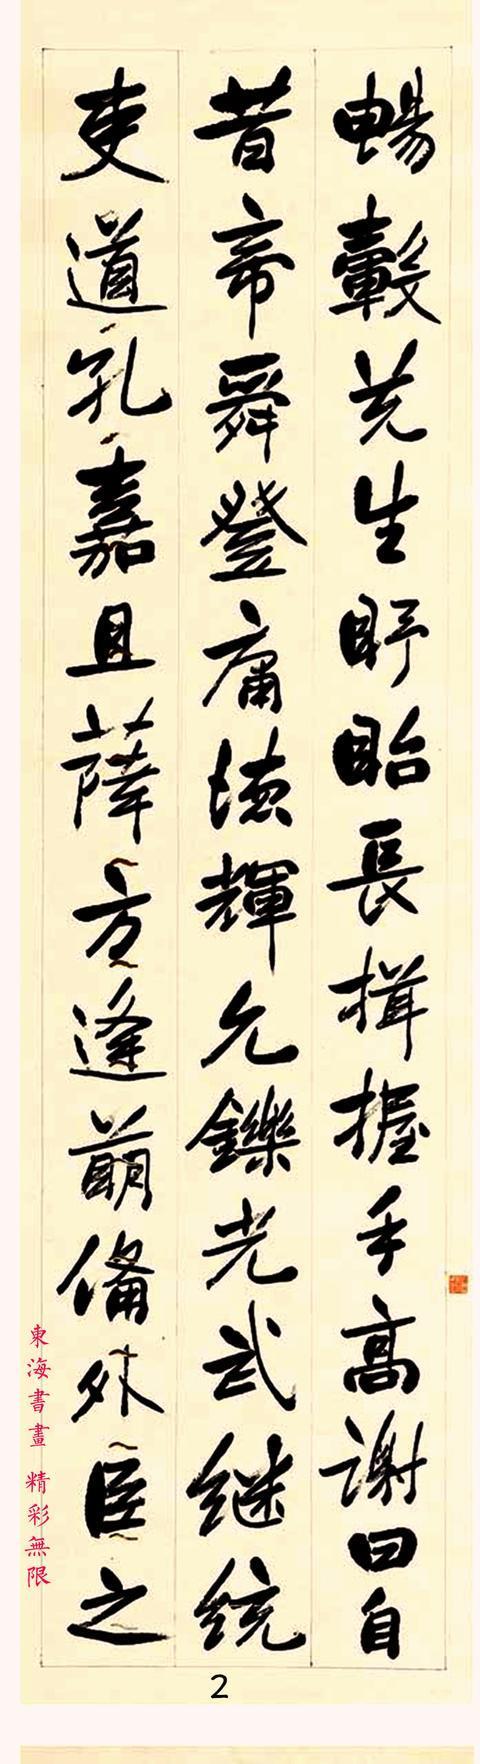 暢轂先生盱眙長揖握手高謝曰自
昔帝舜登庸德輝允鑠光武继统
吏道孔嘉且薩方逢萌備外臣之
東海書畫 精彩無限
2